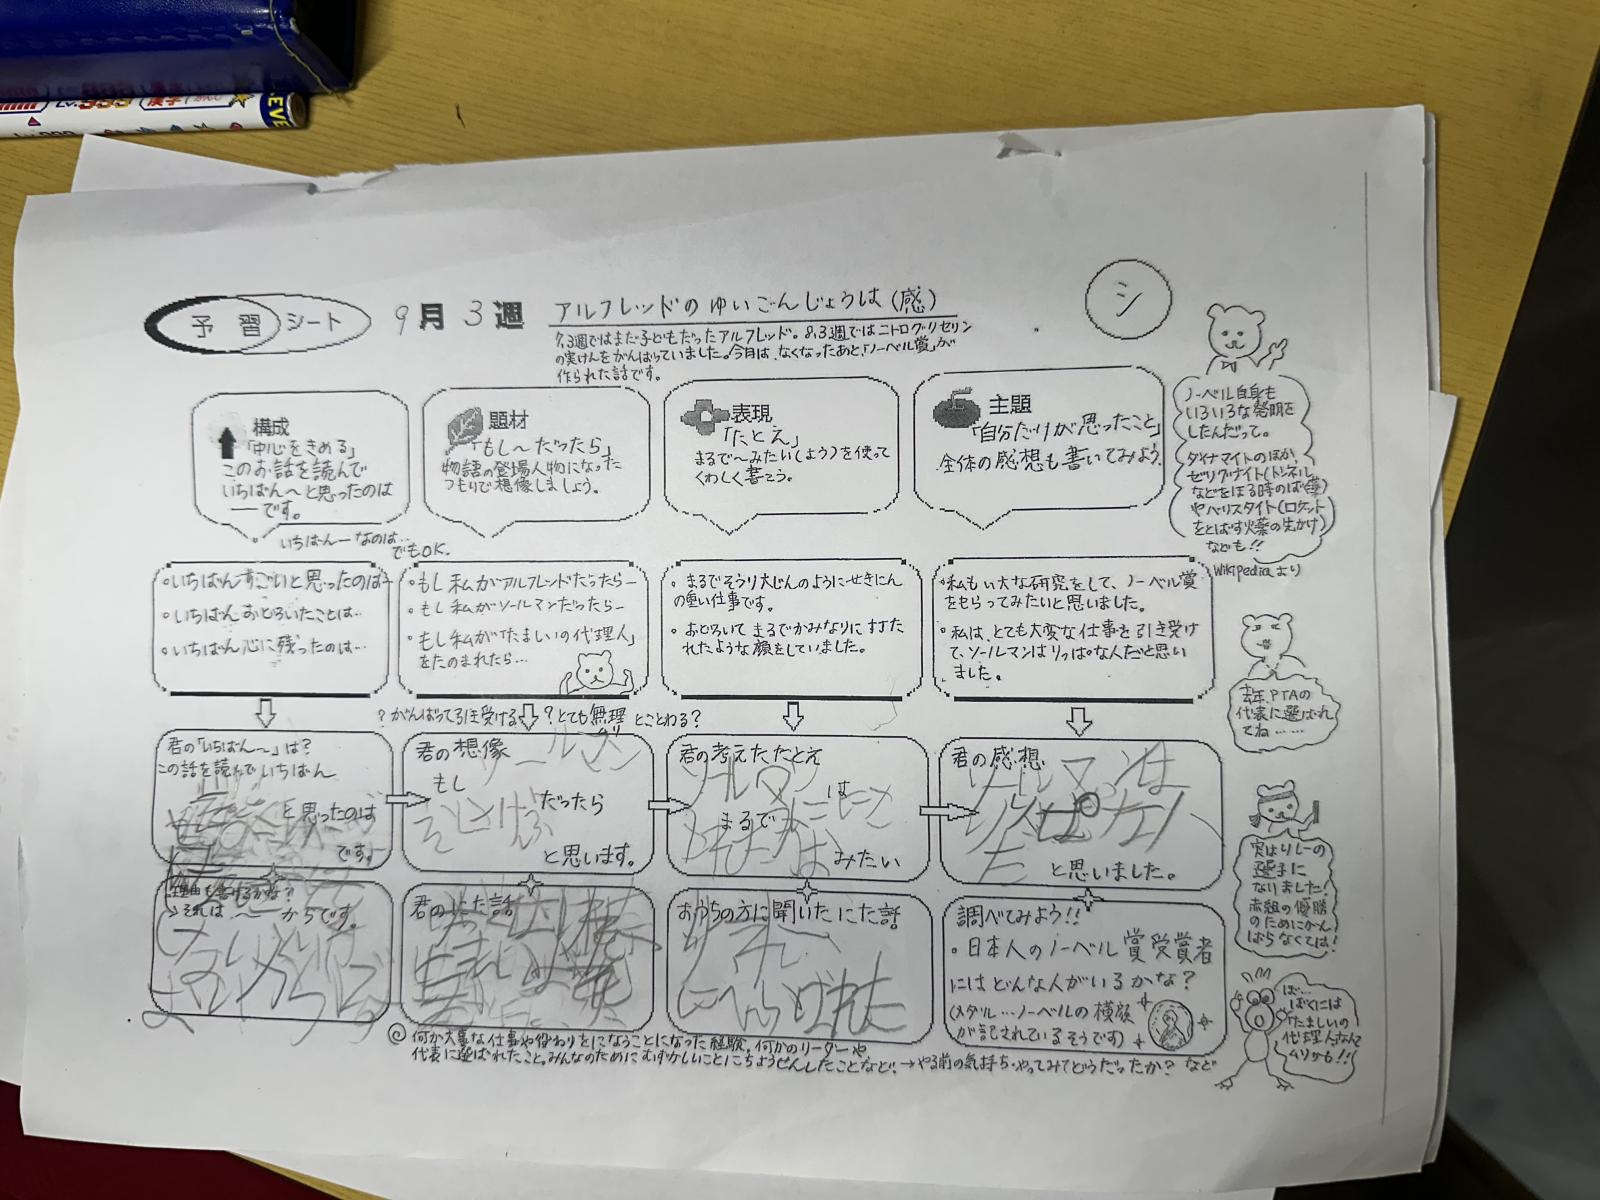 漢字
予習シート
9月3週
アルフレッドのゆいごんじょうは(感)
シ
7.3週ではまだ子どもだったアルフレッド。8.3週ではニトログリセリン
の実けんをがんばっていました。今月は、なくなったあと、「ノーベル賞」が
作られた話です。
構成
「中心をきめる」
このお話を読んで
いちばん〜と思ったのは
―です。
いちばん―なのは…
でもOK.
題材
「もし〜だったら」
物語の登場人物になった
つもりで想像しましょう。
表現
「たとえ」
まるで〜みたい(よう)を使って
くわしく書こう。
主題
「自分だけが思ったこと」
全体の感想も書いてみよう。
ノーベル自身も
いろいろな発明を
したんだって。
ダイナマイトのほか、
ゼリグナイト(トンネル
などをほる時のばくやく)
やバリスタイト(ロケット
をとばす火薬の先がけ)
なども!!
Wikipediaより
・いちばんすごいと思ったのは
・いちばんおどろいたことは…
・いちばん心に残ったのは…
・もし私がアルフレッドだったら―
・もし私がソールマンだったら―
・もし私が「たましいの代理人」
をたのまれたら…
・まるでそうり大じんのようにせきにん
の重い仕事です。
・おどろいてまるでかみなりにうたた
れたような顔をしていました。
・私もい大な研究をして、ノーベル賞
をもらってみたいと思いました。
・私は、とても大変な仕事を引き受け
て、ソールマンはりっぱな人だと思い
ました。
去年、PTAの
代表に選ばれ
てね……
?がんばってひき受ける ?とても無理 とことわる?
君の「いちばん〜」は?
この話を読んでいちばん
と思ったのは
です。
君の想像
ソールマン
もし
だったら
と思います。
君の考えたたとえ
ソールマン
は
まるで
みたい
君の感想
ソールマンは
りっぱな人
だ
と思いました。
実はリレーの
選手に
なりました!
赤組の優勝
のためにがん
ばらなくては!
理由も書けるかな?
→それは〜―からです。
君のにた話
おうちの方に聞いたにた話
調べてみよう!!
・日本人のノーベル賞受賞者
にはどんな人がいるかな?
(メダル…ノーベルの横顔
が記されているそうです)
ぼ…
ぼくには
「たましいの
代理人」なんて
ムリかも!!
◎何か大事な仕事や役わりをになうことになった経験。何かのリーダーや
代表に選ばれたこと。みんなのためにむずかしいことにちょうせんしたことなど。→やる前の気持ち・やってみてどうだったか? など